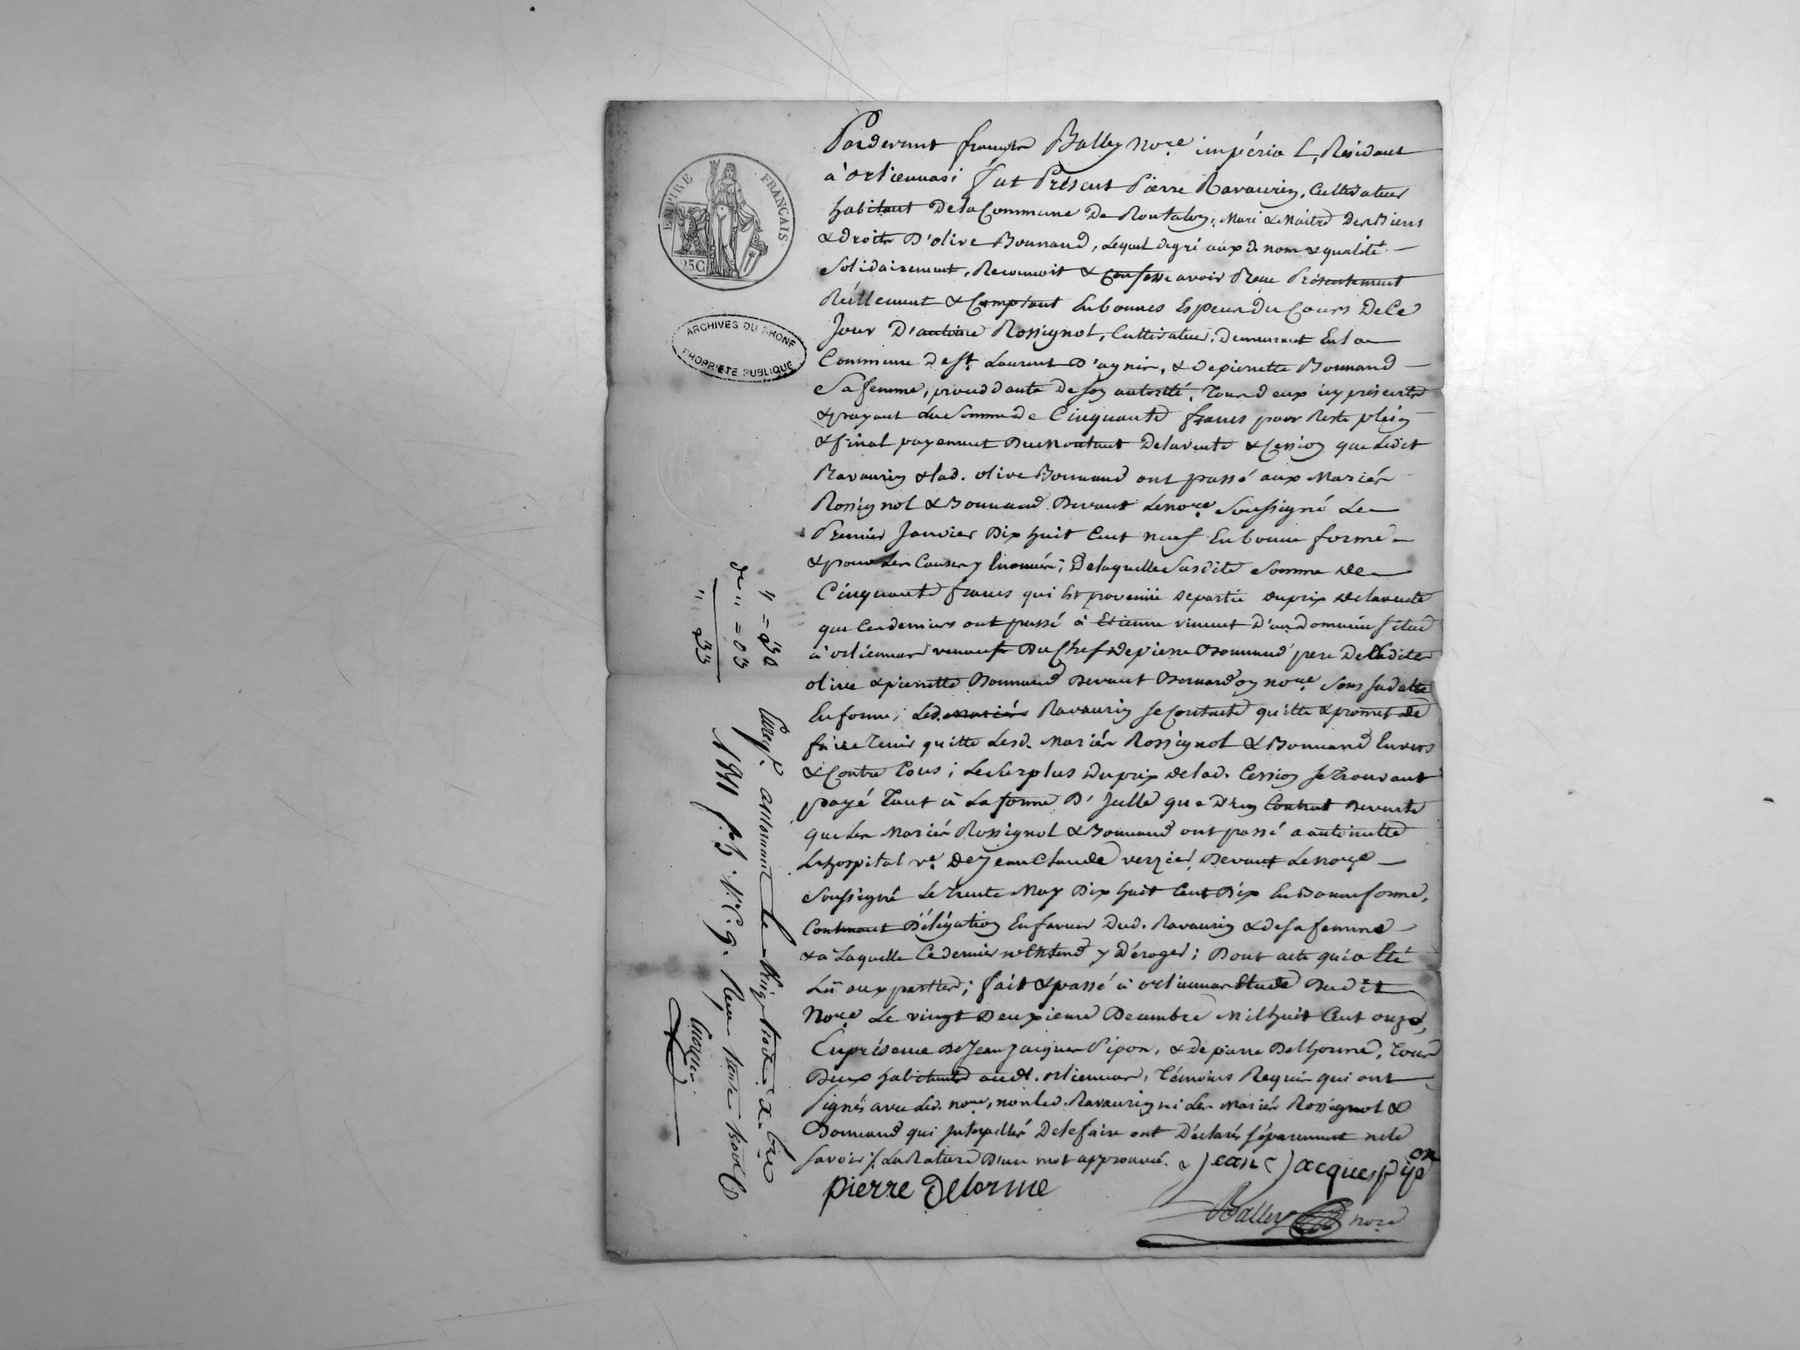 EMPIRE FRANÇAIS
25C
ARCHIVES DU RHONE
PROPRIETE PUBLIQUE
Pardevant françois Balley No.re impérial, Résidant
à orliennas; fut Présent Pierre Ravaurin, Cultivateur
habitant De la Commune De Rontalon, Mari & Maitre Des Biens
& droits D'olive Bonnand, Lequel degré aux d. nom & qualité
Solidairement, Reconnoit & Confesse avoir Reçu Présentement
Réellement & Comptant En bonnes Espèces Du Cours De Ce
Jour D'antoine Rossignol, Cultivateur, demeurant En la
Commune De St. Laurent D'agnir, & De pierrette Bonnand
Sa femme, procédante De Son autorité, Tous deux icy présents
& payant La Somme de Cinquante francs pour Reste plein
& final payement Du Montant De la vente & Cession que Ledit
Ravaurin & lad. olive Bonnand ont passé aux Mariés
Rossignol & Bonnand Devant Le no.re Soussigné Le
Premier Janvier Dix huit Cent neuf En bonne forme
& pour Les Causes y Enoncées; De laquelle Susdite Somme de
Cinquante francs qui Est provenüe De partie du prix de la vente
que Ces derniers ont passé à Etienne vincent D'un Domaine situé
à orliennas venant Du Chef de pierre Bonnand pere De Lesdites
olive & pierrette Bonnand Devant Bernardon no.re Sous Sa datte
En forme; Led. mariés Ravaurin se Contente quitte & promet de
faire Tenir quitte Lesd. Mariés Rossignol & Bonnand Envers
& Contre Tous; Le Surplus Du prix de lad. Cession se Trouvant
payé Tant à La forme D'Icelle que D'un Contrat De vente
que Les Mariés Rossignol & Bonnand ont passé a antoinette
Lhospital v.e De Jean Claude verzier, Devant Le no.re
Soussigné Le Trente May Dix huit Cent Dix En Bonne forme,
Contenant Délégation En faveur Dud. Ravaurin & de sa femme
& à Laquelle Ce dernier n'Entend y Déroger; Dont acte qui a Eté
Lû aux parties; fait & passé à orliennas Etude Dudit
No.re Le vingt Deuxieme Decembre Mil huit Cent onze,
En présence De Jean Jacques Pipon, & De pierre Delhorme, Tous
Deux habitants aud. orliennas, Témoins Requis qui ont
Signés avec Led. no.re, non Led. Ravaurin ni Les Mariés Rossignol &
Bonnand qui Interpellés De le faire ont Déclarés Séparement ne le
Savoir /. La Rature D'un mot approuvée.
Jean Jacques pipon
pierre Delorme
Balley no.re
" = 30
de " = 03
" 33
1811 f.
Reçu trente trois C.